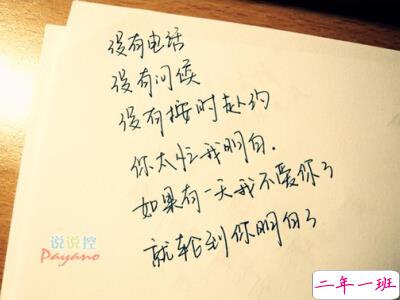 没有电话
没有问候
没有按时赴约
你太忙我明白.
如果有一天我不爱你了
就轮到你明白了
说说控
Payano
二年一班